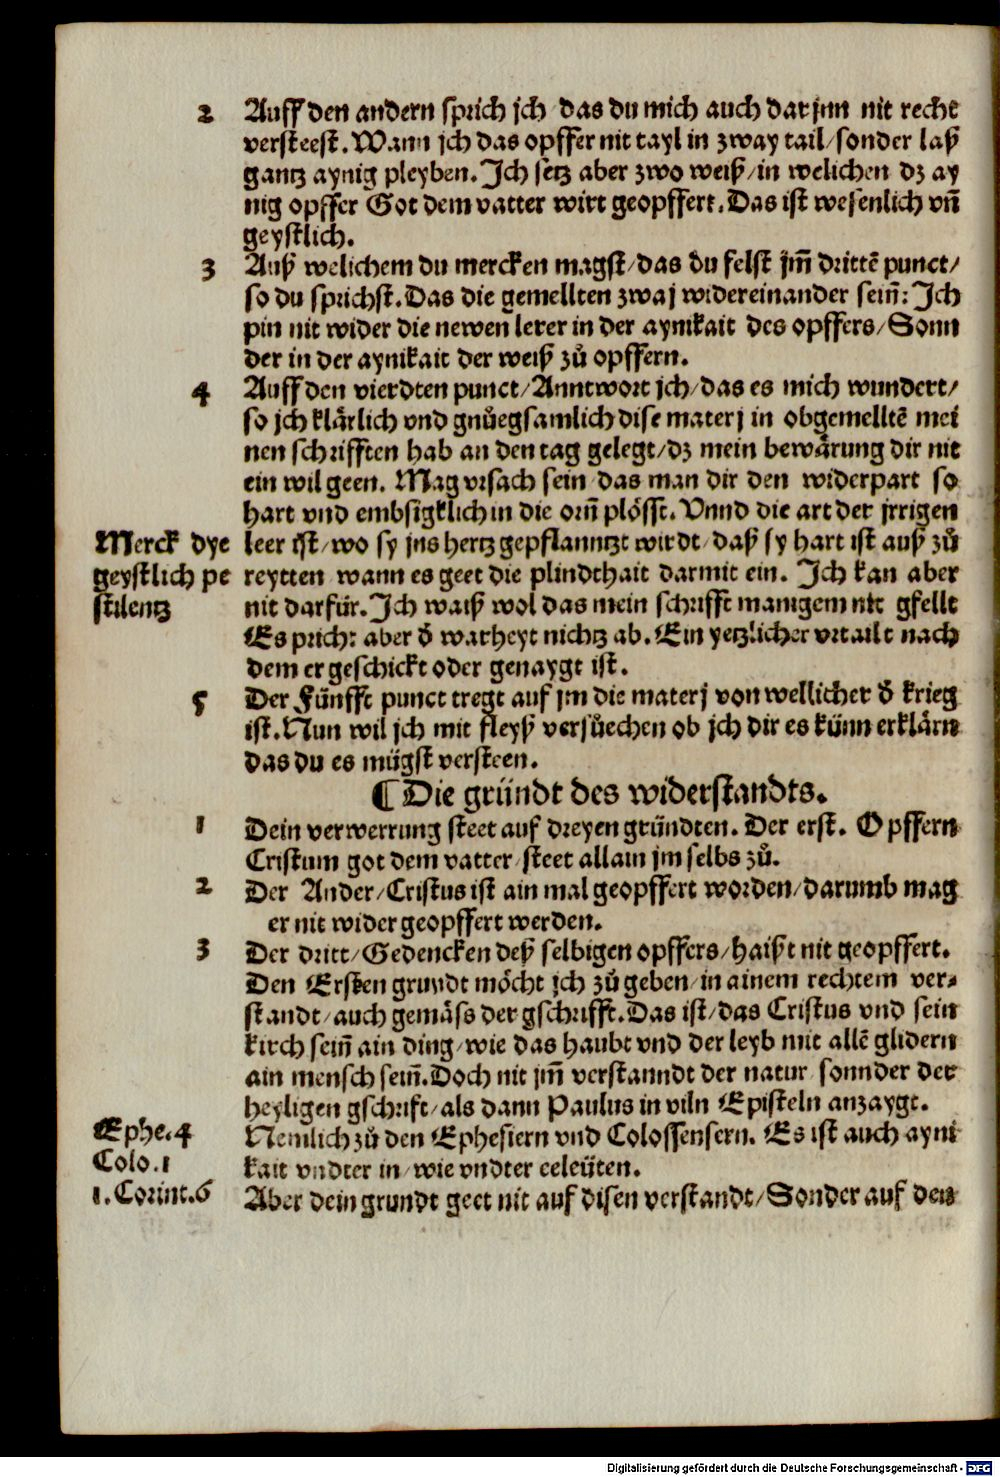 2 Auff den andern sprich jch das du mich auch dar jnn nit recht
versteest. Wann jch das opffer nit tayl in zway tail/sonder laß
gantz aynig pleyben. Ich setz aber zwo weiß/in welichen dz ay
nig opffer Got dem vatter wirt geopffert. Das ist wesenlich vñ
geystlich.
3 Auß welichem du mercken magst/das du felst jm̃ drittẽ punct/
so du sprichst. Das die gemellten zwaj widereinander sein̄: Ich
pin nit wider die newen lerer in der aynikait des opffers/Sonn
der in der aynikait der weiß zů opffern.
4 Auff den vierdten punct/Anntwort jch/das es mich wundert/
so jch klärlich vnd gnůegsamlich dise materj in obgemelltẽ mei
nen schrifften hab an den tag gelegt/dz mein bewärung dir nit
ein wil geen. Mag vrsach sein das man dir den widerpart so
hart vnd embsigklich in die orn̄ plösst. Vnnd die art der jrrigen
Merck dye leer ist/wo sy jns hertz gepflanntzt wirdt/daß sy hart ist auß zů
geystlich pe reytten wann es geet die plindthait darmit ein. Ich kan aber
stilentz nit darfür. Ich waiß wol das mein schrifft manigem nit gfellt
Es prich: aber d̄ warheyt nichtz ab. Ein yetzlicher vrtailt nach
dem er geschickt oder genaygt ist.
5 Der Fünfft punct tregt auf jm die materj von wellicher d̄ krieg
ist. Nun wil jch mit fleyß versůechen ob jch dir es künn erklärn
das du es mügst versteen.
¶ Die gründt des widerstandts.
1 Dein verwerrung steet auf dreyen gründten. Der erst. Opffern
Cristum got dem vatter/steet allain jm selbs zů.
2 Der Ander/Cristus ist ain mal geopffert worden/darumb mag
er nit wider geopffert werden.
3 Der dritt/Gedencken deß selbigen opffers/haißt nit geopffert.
Den Ersten grundt möcht jch zů geben/in ainem rechtem ver-
standt/auch gemäß der gschrifft. Das ist/das Cristus vnd sein
kirch sein̄ ain ding/wie das haubt vnd der leyb mit allẽ glidern
ain mensch sein̄. Doch nit jm̃ verstanndt der natur sonnder der
heyligen gschrift/als dann Paulus in viln Episteln anzaygt.
Ephe. 4 Nemlich zů den Ephesiern vnd Colossensern. Es ist auch ayni
Colo. 1 kait vndter in/wie vndter eeleüten.
1. Corint. 6 Aber dein grundt geet nit auf disen verstandt/Sonder auf den
Digitalisierung gefördert durch die Deutsche Forschungsgemeinschaft - DFG